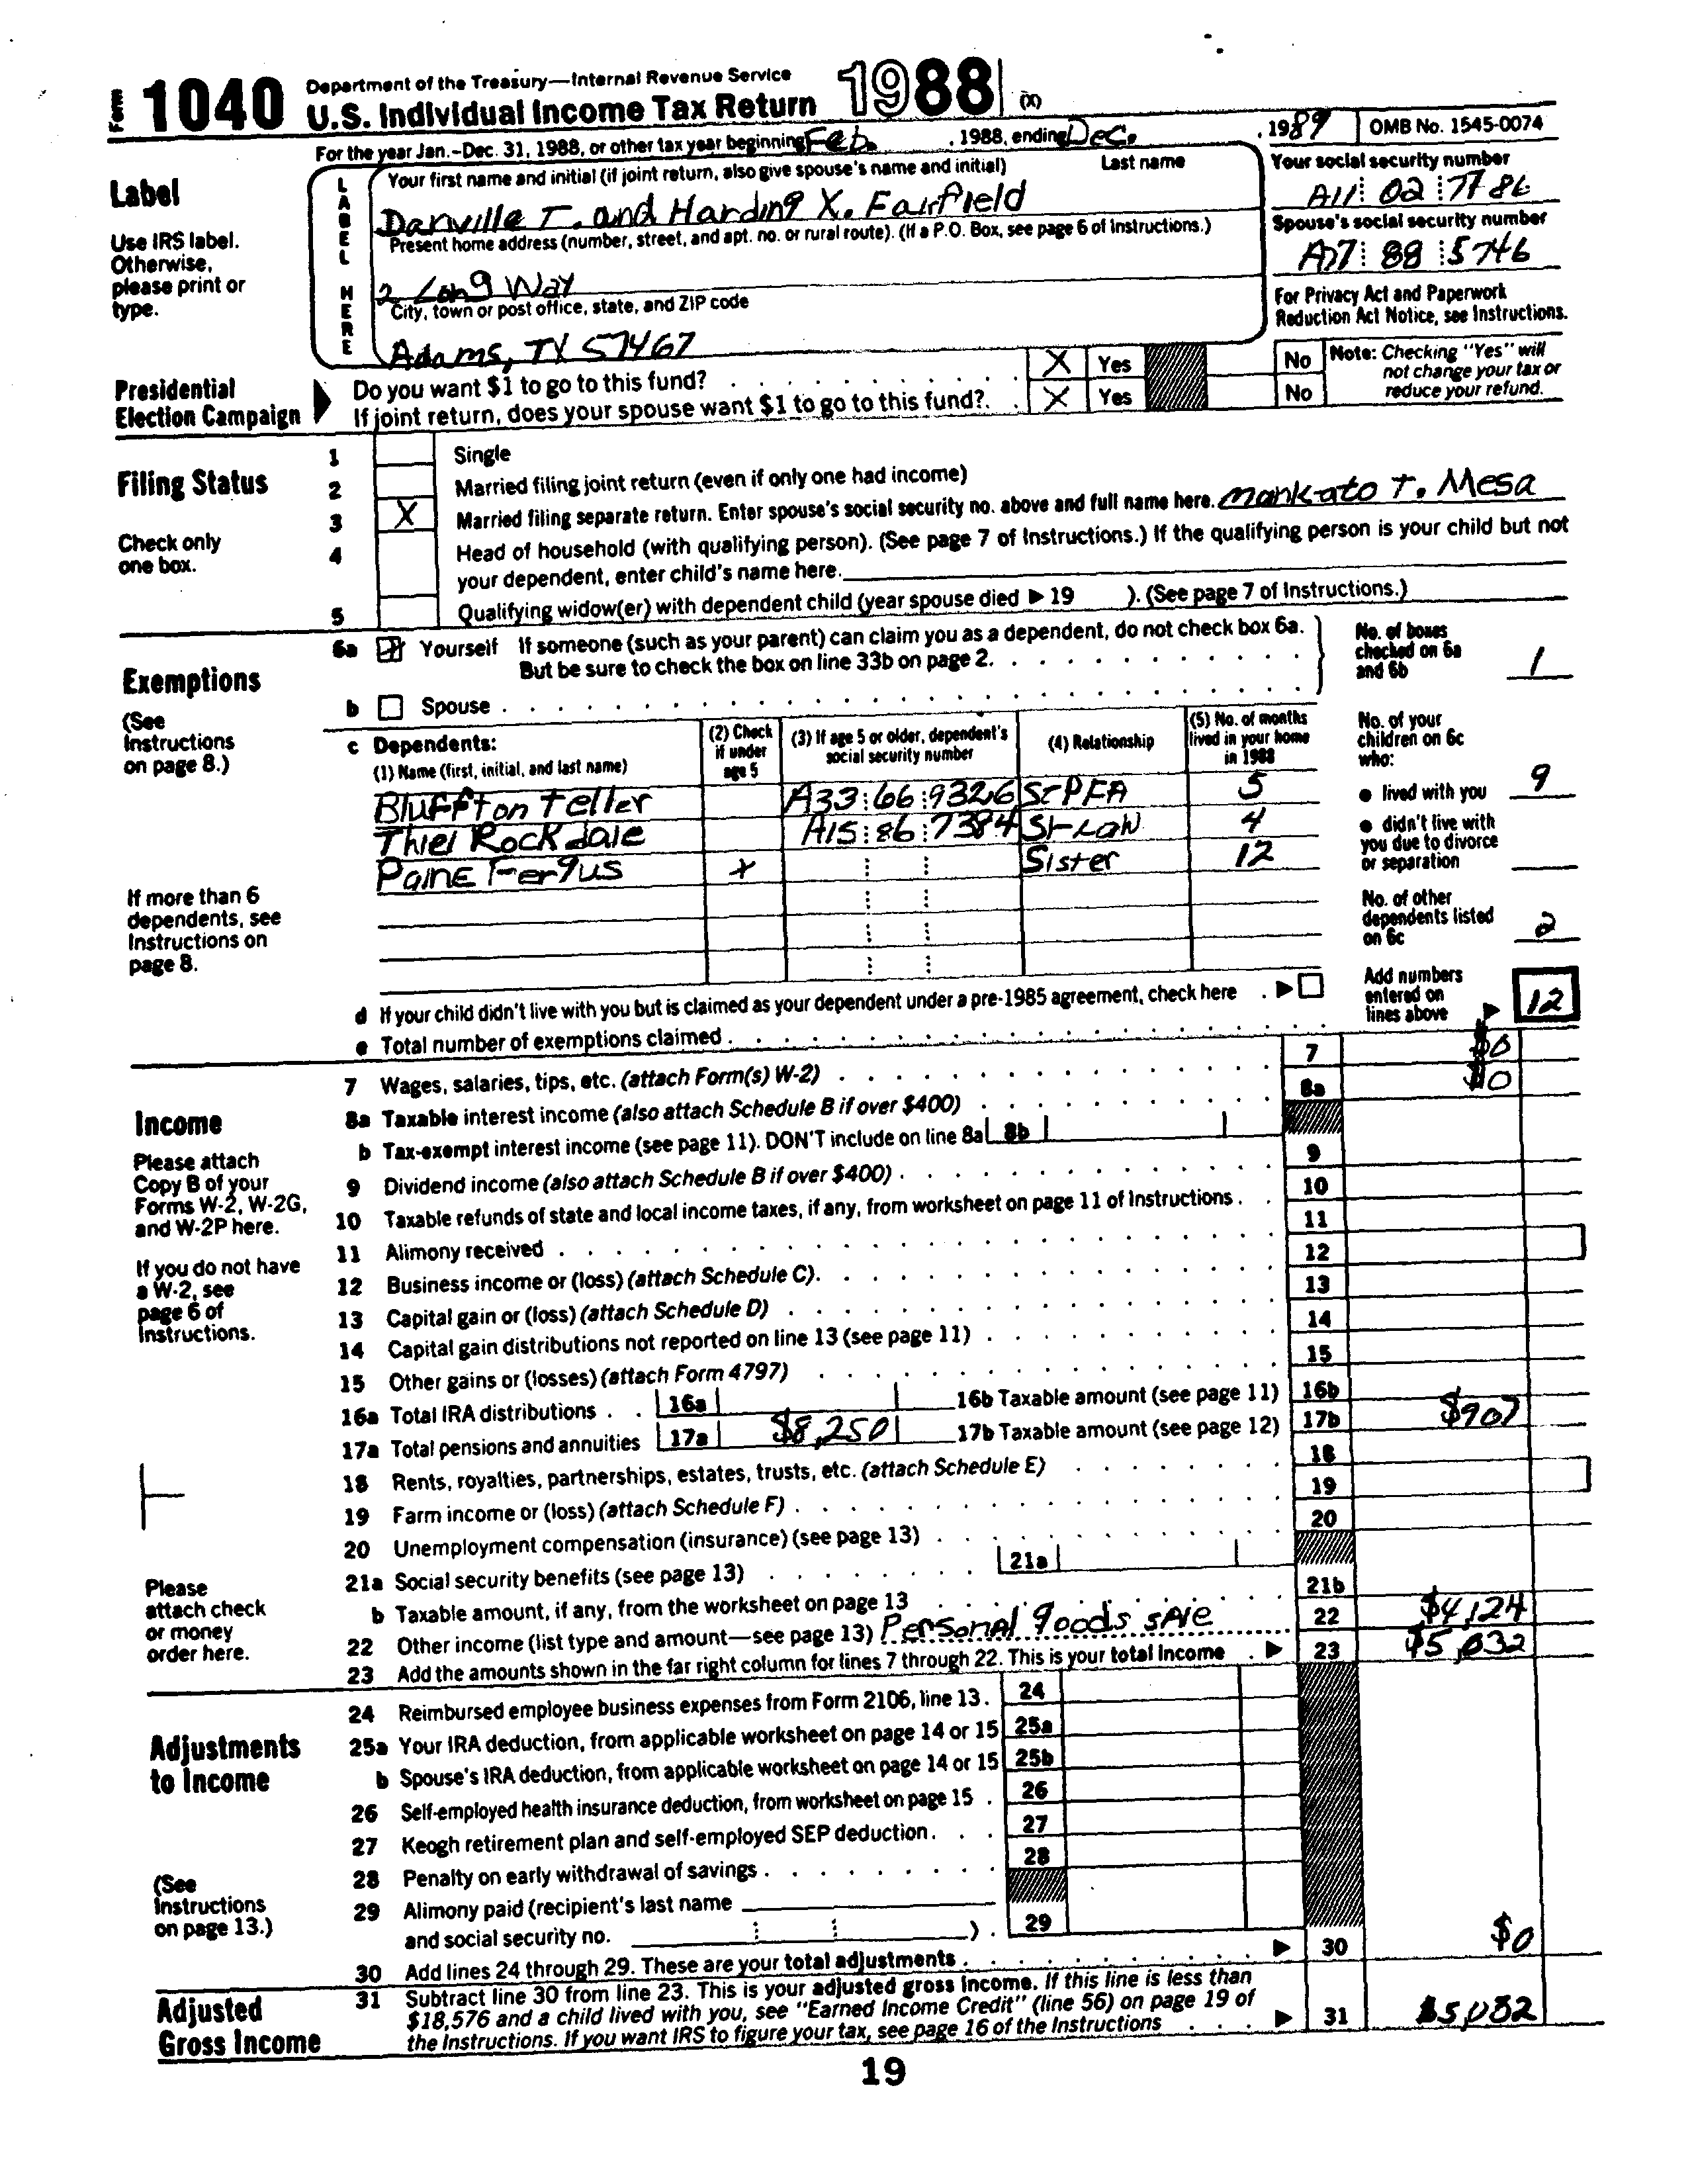 Form 1040 Department of the Treasury—Internal Revenue Service
U.S. Individual Income Tax Return 1988 (X)
For the year Jan.-Dec. 31, 1988, or other tax year beginning Feb. , 1988, ending Dec. , 1989 OMB No. 1545-0074
Label
Use IRS label.
Otherwise,
please print or
type.
LABEL HERE
Your first name and initial (if joint return, also give spouse's name and initial) Last name
Danville T. and Harding X. Fairfield
Your social security number
A11 02 7786
Present home address (number, street, and apt. no. or rural route). (If a P.O. Box, see page 6 of Instructions.)
2 Long Way
Spouse's social security number
A77 88 5746
City, town or post office, state, and ZIP code
Adams, TX 57467
For Privacy Act and Paperwork
Reduction Act Notice, see Instructions.
Presidential
Election Campaign
Do you want $1 to go to this fund? X Yes No
If joint return, does your spouse want $1 to go to this fund?. X Yes No
Note: Checking "Yes" will
not change your tax or
reduce your refund.
Filing Status
Check only
one box.
1 Single
2 Married filing joint return (even if only one had income)
3 X Married filing separate return. Enter spouse's social security no. above and full name here. Mankato T. Mesa
4 Head of household (with qualifying person). (See page 7 of Instructions.) If the qualifying person is your child but not
your dependent, enter child's name here.
5 Qualifying widow(er) with dependent child (year spouse died ▶ 19 ). (See page 7 of Instructions.)
Exemptions
(See
Instructions
on page 8.)
6a Yourself If someone (such as your parent) can claim you as a dependent, do not check box 6a.
But be sure to check the box on line 33b on page 2.
b Spouse
No. of boxes
checked on 6a
and 6b 1
c Dependents:
(1) Name (first, initial, and last name)
(2) Check
if under
age 5
(3) If age 5 or older, dependent's
social security number
(4) Relationship
(5) No. of months
lived in your home
in 1988
Bluffton Teller A33 66 9326 StPFA 5
Thiel Rockdale A15 86 7384 St-Law 4
Paine Fergus X Sister 12
No. of your
children on 6c
who:
● lived with you 9
● didn't live with
you due to divorce
or separation
No. of other
dependents listed
on 6c 2
If more than 6
dependents, see
Instructions on
page 8.
d If your child didn't live with you but is claimed as your dependent under a pre-1985 agreement, check here . ▶
e Total number of exemptions claimed
Add numbers
entered on
lines above ▶ 12
Income
Please attach
Copy B of your
Forms W-2, W-2G,
and W-2P here.
If you do not have
a W-2, see
page 6 of
Instructions.
Please
attach check
or money
order here.
7 Wages, salaries, tips, etc. (attach Form(s) W-2) 7 $0
8a Taxable interest income (also attach Schedule B if over $400) 8a $0
b Tax-exempt interest income (see page 11). DON'T include on line 8a 8b
9 Dividend income (also attach Schedule B if over $400) 9
10 Taxable refunds of state and local income taxes, if any, from worksheet on page 11 of Instructions 10
11 Alimony received 11
12 Business income or (loss) (attach Schedule C). 12
13 Capital gain or (loss) (attach Schedule D) 13
14 Capital gain distributions not reported on line 13 (see page 11) 14
15 Other gains or (losses) (attach Form 4797) 15
16a Total IRA distributions 16a 16b Taxable amount (see page 11) 16b
17a Total pensions and annuities 17a $8,250 17b Taxable amount (see page 12) 17b $907
18 Rents, royalties, partnerships, estates, trusts, etc. (attach Schedule E) 18
19 Farm income or (loss) (attach Schedule F) 19
20 Unemployment compensation (insurance) (see page 13) 20
21a Social security benefits (see page 13) 21a
b Taxable amount, if any, from the worksheet on page 13 21b
22 Other income (list type and amount—see page 13) Personal goods sale 22 $4,124
23 Add the amounts shown in the far right column for lines 7 through 22. This is your total income ▶ 23 $5,032
Adjustments
to Income
(See
Instructions
on page 13.)
24 Reimbursed employee business expenses from Form 2106, line 13. 24
25a Your IRA deduction, from applicable worksheet on page 14 or 15 25a
b Spouse's IRA deduction, from applicable worksheet on page 14 or 15 25b
26 Self-employed health insurance deduction, from worksheet on page 15 26
27 Keogh retirement plan and self-employed SEP deduction. 27
28 Penalty on early withdrawal of savings 28
29 Alimony paid (recipient's last name
and social security no. ) . 29
30 Add lines 24 through 29. These are your total adjustments ▶ 30 $0
Adjusted
Gross Income
31 Subtract line 30 from line 23. This is your adjusted gross income. If this line is less than
$18,576 and a child lived with you, see "Earned Income Credit" (line 56) on page 19 of
the Instructions. If you want IRS to figure your tax, see page 16 of the Instructions ▶ 31 $5,032
19